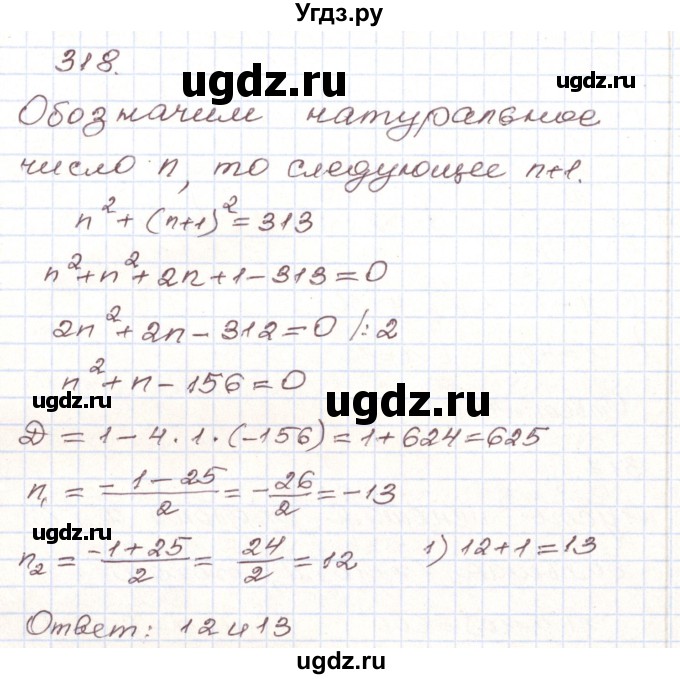 Угдз.ру
318.
ugdz.ru ugdz.ru
Обозначим натуральное
число n, то следующее n+1.
n² + (n+1)² = 313
n² + n² + 2n + 1 - 313 = 0
2n² + 2n - 312 = 0 /:2
n² + n - 156 = 0
ugdz.ru ugdz.ru
Д = 1 - 4 · 1 · (-156) = 1 + 624 = 625
n₁ = (-1-25)/2 = -26/2 = -13
ugdz.ru
n₂ = (-1+25)/2 = 24/2 = 12 1) 12+1=13
ugdz.ru
Ответ: 12 и 13
ugdz.ru